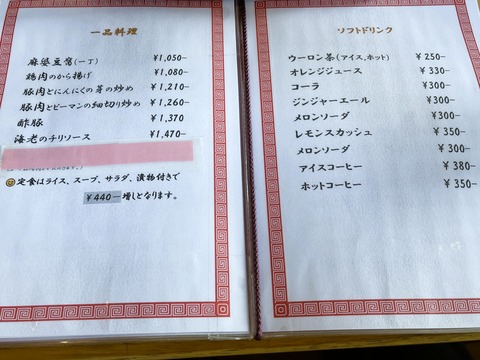 一品料理
麻婆豆腐(一丁) ¥1,050-
鶏肉のから揚げ ¥1,080
豚肉とにんにくの芽の炒め ¥1,210
豚肉とピーマンの細切り炒め ¥1,260
酢豚 ¥1,370
海老のチリソース ¥1,470-
定食はライス、スープ、サラダ、漬物付きで
¥440- 増しとなります。
ソフトドリンク
ウーロン茶(アイス,ホット) ¥250-
オレンジジュース ¥330-
コーラ ¥300-
ジンジャーエール ¥300-
メロンソーダ ¥300-
レモンスカッシュ ¥350-
メロンソーダ ¥300-
アイスコーヒー ¥380-
ホットコーヒー ¥350-